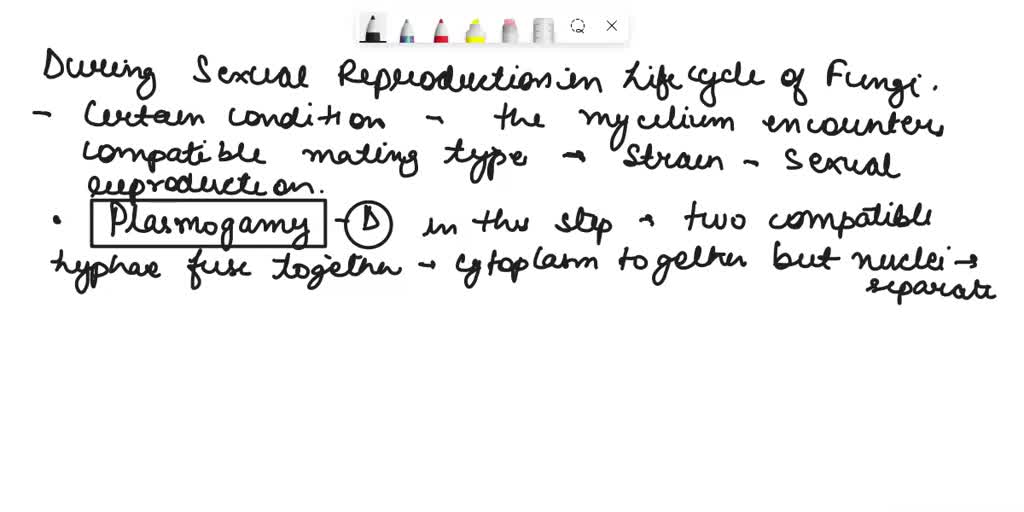 During Sexual Reproduction in Life cycle of Fungi.
- Certain condition - the mycelium encounters
compatible mating type → Strain - Sexual
reproduction.
• Plasmogamy - D in this step → two compatible
hyphae fuse together → cytoplasm together but nuclei →
separate